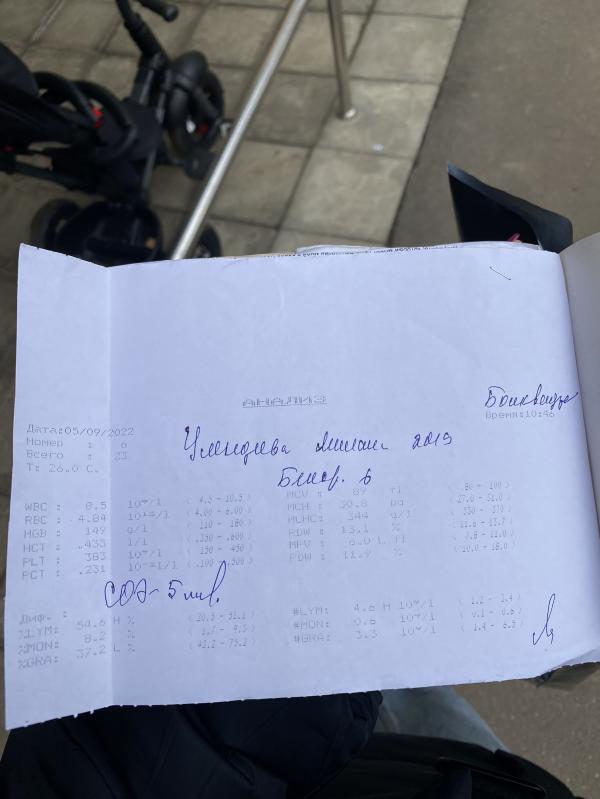 АНАЛИЗ
Дата:05/09/2022 Время:10:46
Номер : 6
Всего : 23
T: 26.0 C.
2019
WBC : 8.5 10^9/l ( 4.5 - 10.5 ) MCV : 89 fl ( 80 - 100 )
RBC : 4.84 10^12/l ( 4.00 - 6.00 ) MCH : 30.8 pg ( 27.0 - 31.0 )
HGB : 149 g/l ( 110 - 180 ) MCHC: 344 g/l ( 330 - 370 )
HCT : .433 l/l ( .350 - .600 ) RDW : 13.1 % ( 11.6 - 13.7 )
PLT : 383 10^9/l ( 150 - 450 ) MPV : 6.0 L fl ( 7.8 - 11.0 )
PCT : .231 10^-2l/l ( .100 - .500 ) PDW : 11.9 % ( 10.0 - 18.0 )
СОЭ - 5 мм/ч.
Диф. :
%LYM: 54.6 H % ( 20.5 - 51.1 ) #LYM: 4.6 H 10^9/l ( 1.2 - 3.4 )
%MON: 8.2 % ( 1.7 - 9.3 ) #MON: 0.6 10^9/l ( 0.1 - 0.6 )
%GRA: 37.2 L % ( 42.2 - 75.2 ) #GRA: 3.3 10^9/l ( 1.4 - 6.5 )